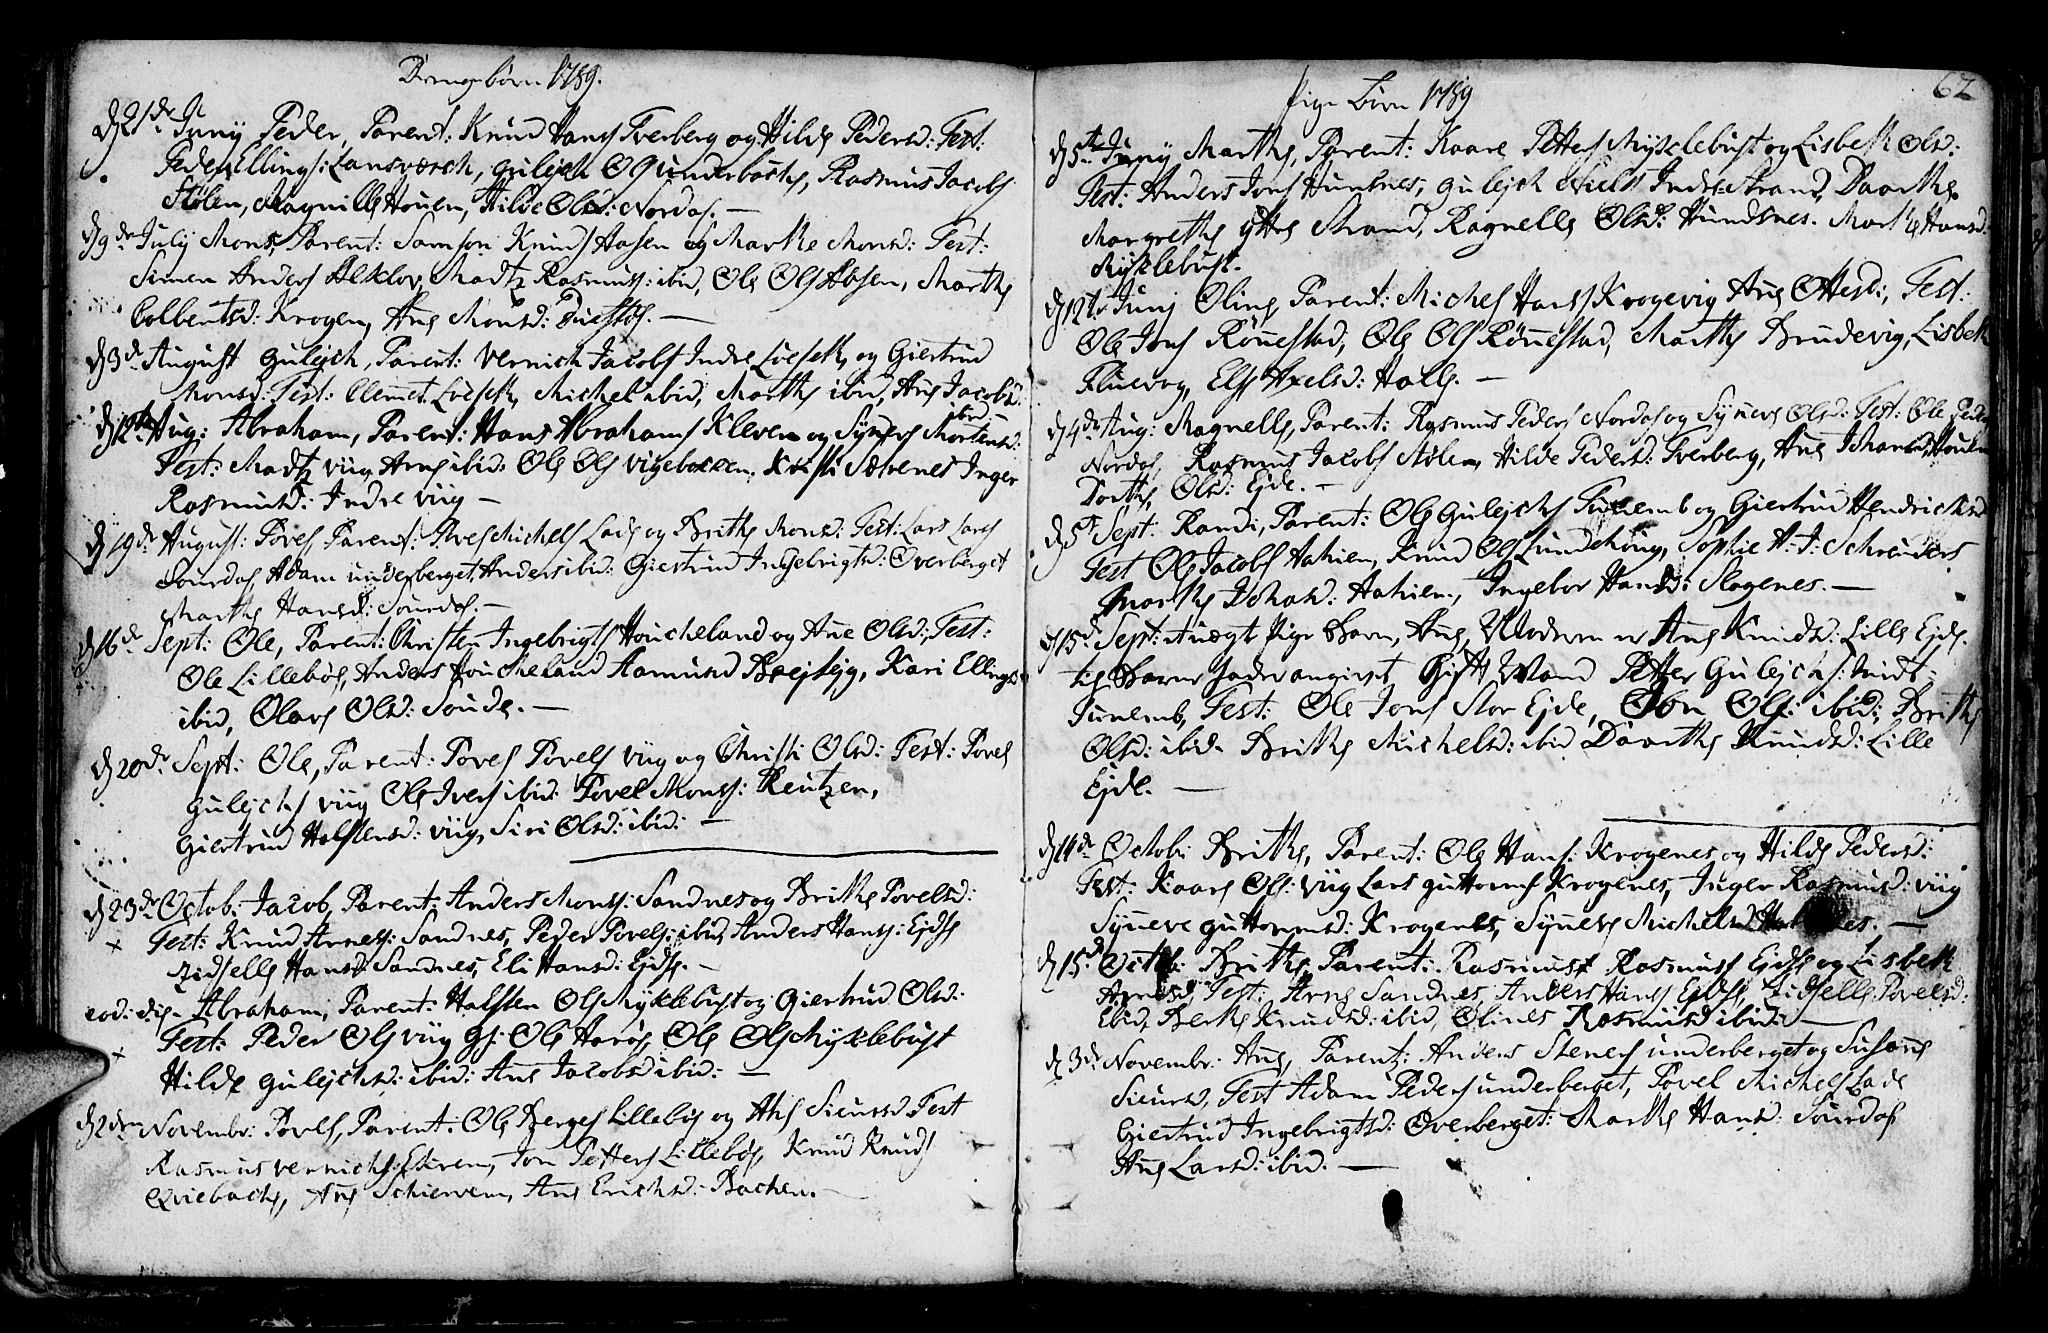 Drengebørn 1789.
d 21de Juny Peder, Parent: Knud Hans Tverberg og Hilde Pedersd: Test:
Peder Ellings: Langværch, Gulejch Ols underbache, Rasmus Jacobs
Stølen, Magnilde Houen, Hilde Olsd: Nordas. —
d 9de July Mons, Parent: Samson Knuds Aasen og Marthe Monsd: Test:
Simen Anders Aleklov, Madtz Rasmuss: ibid, Ole Ols Aasen, Marthe
Colbentsd: Krogen, Ane Monsd:
d 3de August Gulejch, Parent: Vernich Jacobs Indre Løeseth, og Giertrud
Monsd: Test: Clemmet Løeseth, Michel ibid, Marthe ibid, Ane Jacobsd:
ibid: —
d 12te Aug: Abraham, Parent: Hans Abrahams Kleven og Synneve Mortensd:
Test: Madtz viig, Arne ibid: Ole Ols vigebachen, Inger
Rasmusd: Indre viig —
d 19de August: Povel, Parent: Michels Lade og Brithe Monsd: Test: Lars Lars
Sourdas, Adam underberget, Anders ibid: Giertrud Ingebrigtsd: Overberget
Marthe Hansd: Sourdas. —
d 16de Sept: Ole, Parent: Christen Ingebrigts Houcheland og Ane Olsd: Test:
Ole Lillebøe, Anders Houcheland Aamund Brejtejg, Kari Ellingsd
ibid, Olave Olsd: Sonde. —
d 20de Sept: Ole, Parent: Povel Povels viig og Christi Olsd: Test: Povel
Gulejchs viig Ole Ivers ibid: Povel Monss: Reutzen,
Giertrud Halstensd: viig, Siri Olsd: ibid: —
d 23de Octob: Jacob, Parent: Anders Monss: Sandnes og Brithe Povelsd:
× Test: Knud Arness: Sandnes, Peder Povels: ibid, Anders Hanss: Ejdse
Zidselle Hansd Sandnes, Eli Hansd: Ejdse. —
eod: die Abraham, Parent: Halsten Ols Myklebust og Giertrud Olsd:
× Test: Peder Ols viig Ole Harøe, Ole Ols Myklebust
Hilde Gulejchsd: ibid: Ane Jacobsd ibid: —
d 2den Novembr: Povel, Parent: Ole Berges Lillebøe og Ane Siursd Test
Rasmus Vernichs: Ekrem, Jon Petters Lillebøe, Knud Knuds
Qviebache, Ane Schierven, Ane Erichsd: Bachen. —
62
Pige Børn 1789
d 5te Juny Marthe, Parent: Kaare Petters Myklebust og Lisbeth Olsd:
Test: Anders Jons Hundsnes, Gulejch Niels Indrestrand, Daarthe
Margrethe Ytre Strand, Ragnelle Olsd: Hundsnes. Marthe Hansd:
Myklebust.
d 12te Juny Oline, Parent: Michel Hans Krogevig Ane Ottesd:, Test:
Ole Jons Rønestad, Ole Ols Rønestad, Marthe Brudevig, Lisbeth
Fluevog, Else Axelsd: Halle. —
d 4de Aug: Magnelle, Parent: Rasmus Peders Nordas og Synneve Olsd: Test: Ole Peders
Nordas, Rasmus Jacobs Stølen, Hilde Pedersd: Tverberg, Ane Johansd: Houen
Dorthe Olsd: Ejde. —
d 5te Sept: Randi, Parent: Ole Gulejchs Tunemb og Giertrud Hendrichsd
Test Ole Jacobs Aahiem, Knud Ols Lundehøug, Sophie H. J: Schreuders
Marthe Johansd: Aahiem, Ingebor Hansd: Slogenes. —
d 15de Sept: Auægt Pige Barn, Ane, Moderen er Ane Knudsd: Lille Ejde.
til Barne Fader angivet Gift Mand Petter Gulejchs: Midt-
Tunemb, Test: Ole Jons Stor Ejde, Ols: ibid: Brithe
Olsd: ibid. Brithe Michelsd: ibid Daarthe Knudsd: Lille
Ejde. —
d 14de Octob: Brithe, Parent: Ole Hans: Krogenes og Hilde Pedersd:
Test: Kaare Ols: viig Lars Guttorms Krogenes, Inger Rasmusd: viig
Synneve Guttormsd: Krogenes, Synneve Michelsd
d 15de Octob: Brithe, Parent: Rasmus Rasmuss Ejdse og Lisbeth
Arnesd, Test: Arne Sandnes, Anders Hans Ejdse, Zidselle Povelsd:
Ibid, Berthe Knudsd: ibid, Oline Rasmusd ibid: —
d 3de Novembr: Ane, Parent: Anders Steners underberget og Susane
Siursd, Test Adam Peders underberget, Povel Michels Lade
Giertrud Ingebrigtsd: Overberget: Marthe Hansd: Sourdas
Ane Larsd: ibid. —